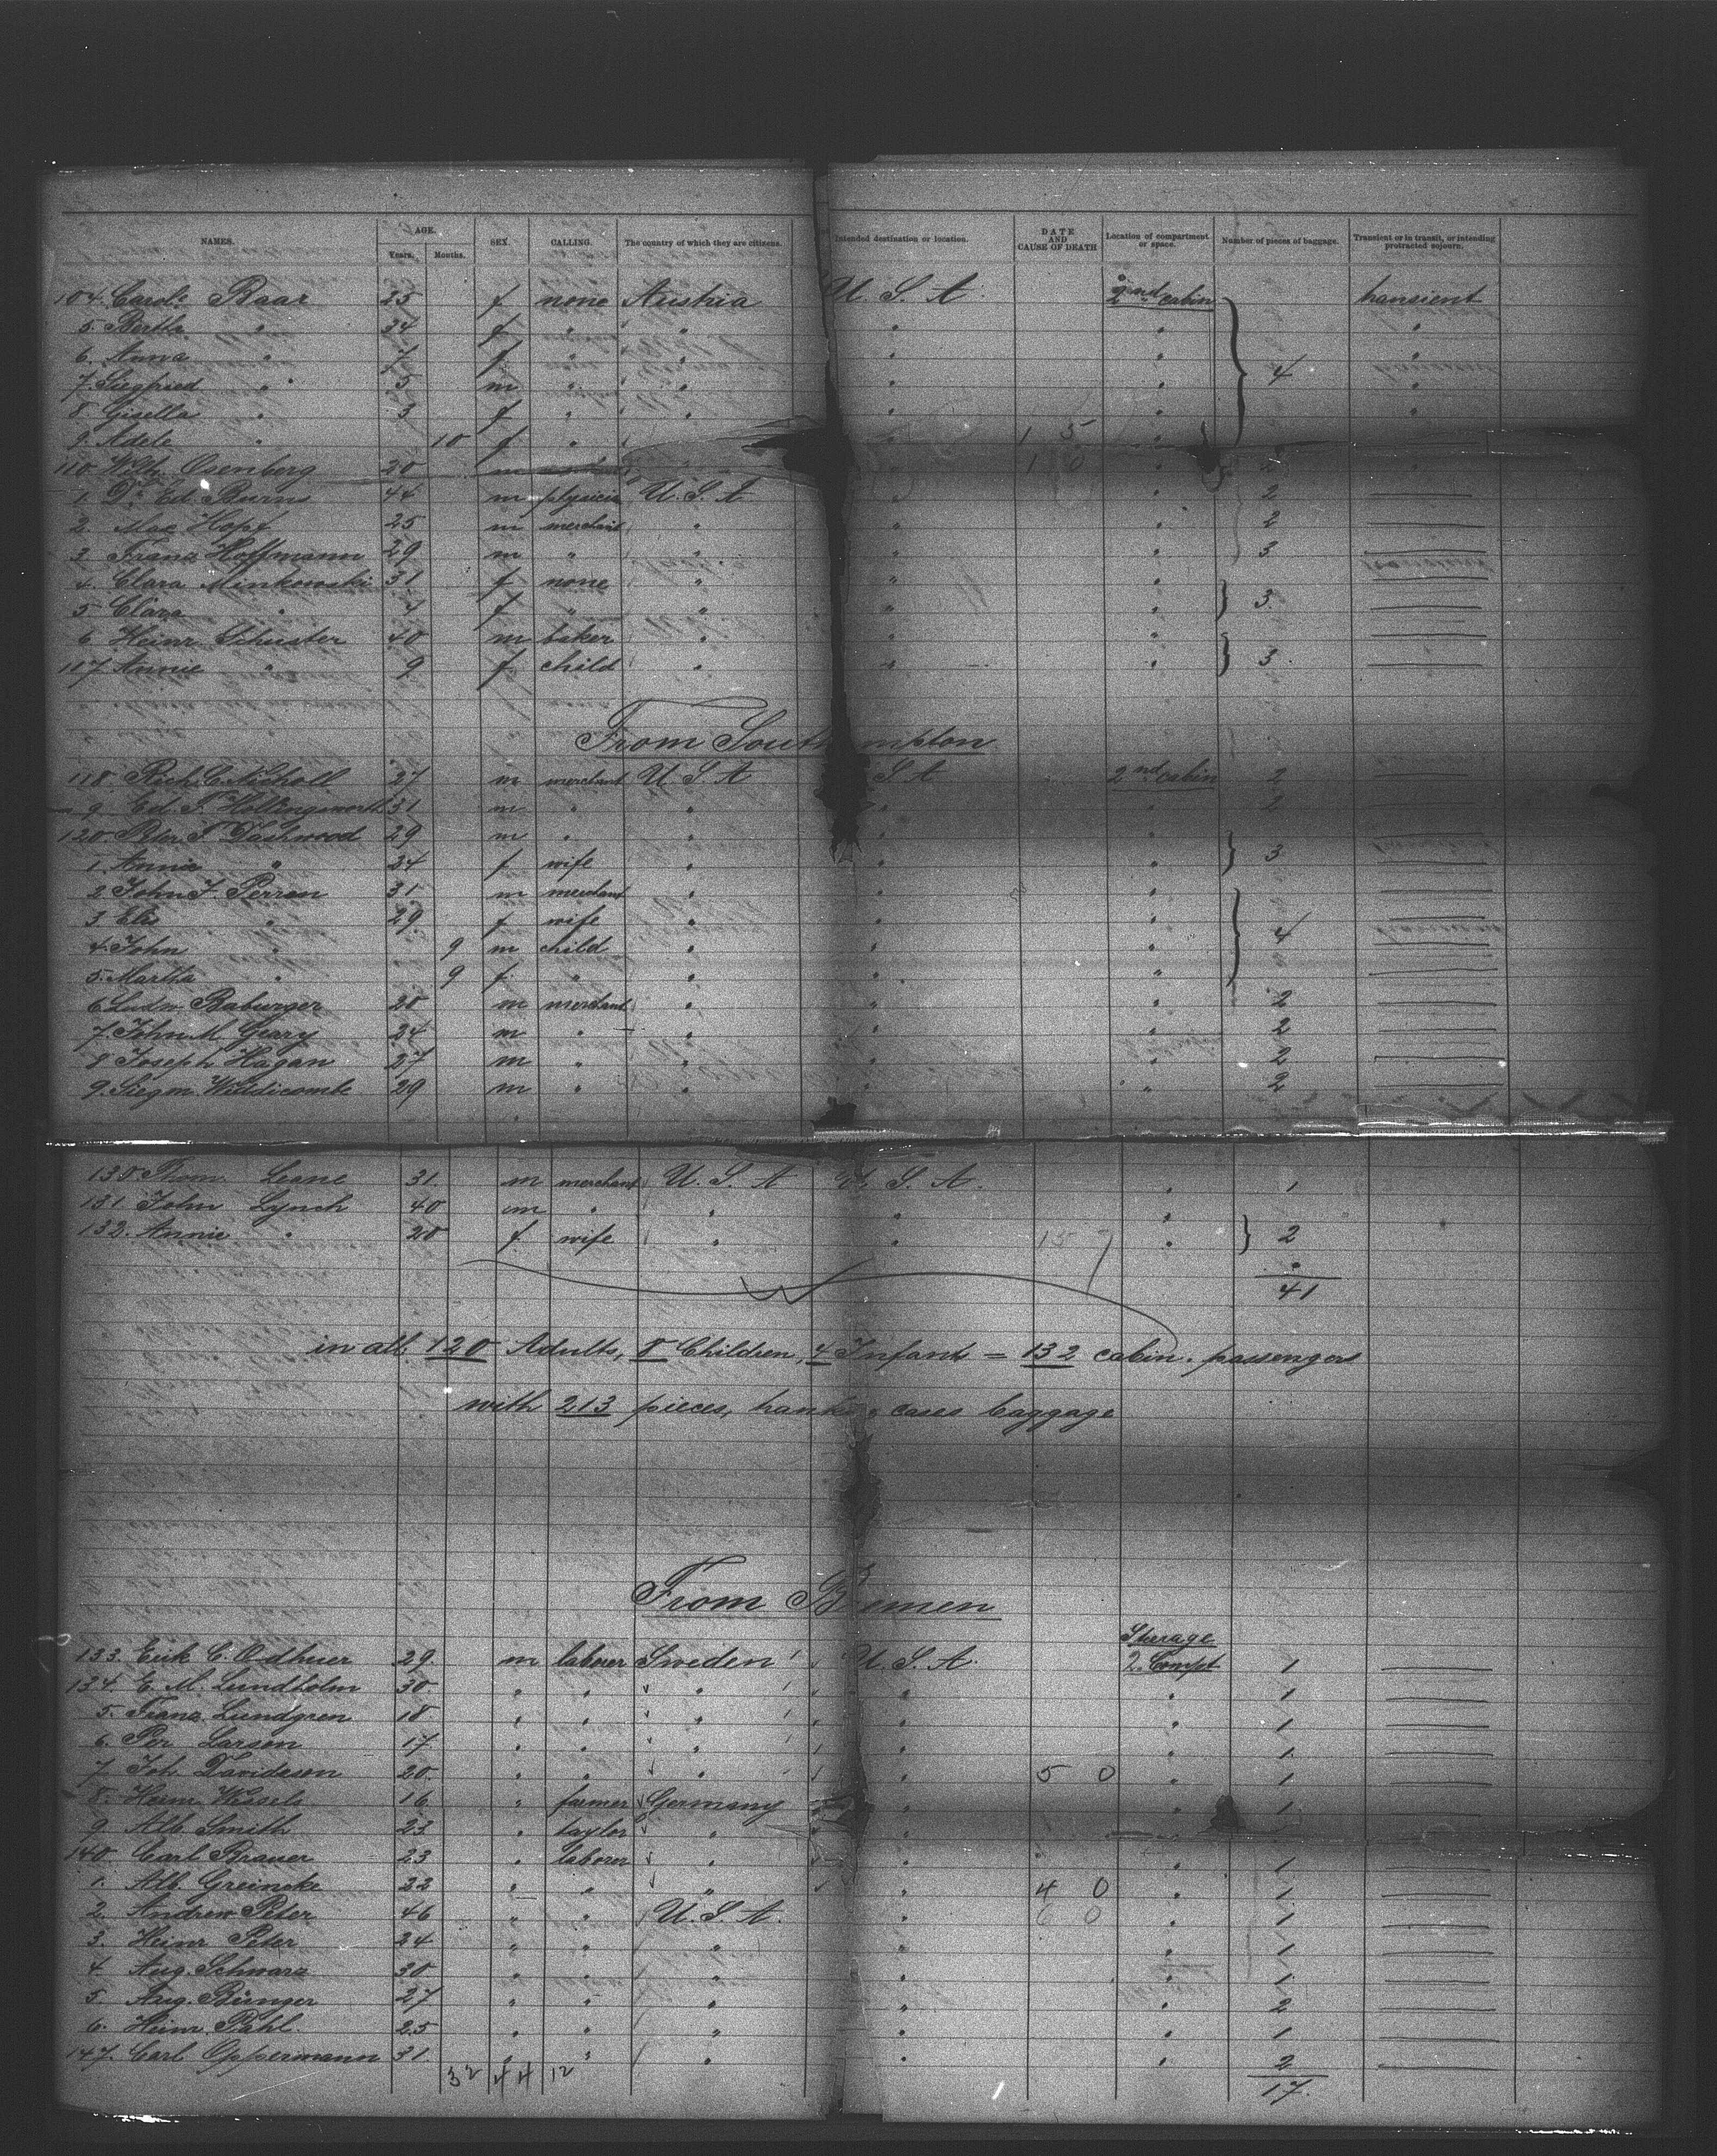 NAMES. AGE. Years. Months. SEX. CALLING. The country of which they are citizens. Intended destination or location. DATE AND CAUSE OF DEATH Location of compartment or space. Number of pieces of baggage. Transient or in transit, or intending protracted sojourn.
104. Carol. Baar 25 f none Austria U. S. A. 2nd cabin transient
5. Bertha " 34 f " " " " "
6. Anna " 7 f " " " " "
7. Siegfried " 5 m " " " " 4 "
8. Gisella " 3 f " " " " "
9. Adele " 10 f " " 1 5 "
110. Wilh. Osenberg 20 m " 1 0 " 2
1. Dr. Ed. Burns 44 m physician U. S. A. " " 2
2. Max Hopf 25 m merchant " " " 2
3 Franz Hoffmann 29 m " " " " 3
4. Clara Minkowski 31 f none " " "
5 Clara " 4 f " " " " 3
6 Heinr. Schuster 40 m baker " " "
117. Annie " 9 f child " " " 3
From Southampton
118 Rich. C. Nicholl 37 m merchant U. S. A S A 2nd cabin 2
9 Ed. T. Hollingsworth 31 m " " " 2
120. Peter T. Dashwood 29 m " " " "
1. Annie " 24 f wife " " " 3
2 John F. Perren 31 m merchant " " "
3 Elis " 29 f wife " " "
4. John " 9 m child " " " 4
5. Martha " 9 f " " " "
6 Ludw. Baburger 28 m merchant " " " 2
7. John M. Geary 24 m " " " " 2
8 Joseph Hagan 27 m " " " " 2
9. Siegm. Widdicombe 29 m " " " " 2
130 Thom. Leane 31. m merchant U. S. A U. S. A. " 1
131 John Lynch 40 m " " " "
132. Annie " 20 f wife " " 15 7 " 2
41
in all 120 Adults, 8 Children, 4 Infants = 132 cabin. passengers
with 213 pieces, cases baggage
From Bremen
Steerage
133. Erik C. Odhner 29. m laborer Sweden U. S. A. 2. Compt 1
134. E. M. Lundholm 30 " " " " " 1
5. Franz Lundgren 18 " " " " " 1
6. Per Larsen 17 " " " " " 1
7. Joh. Davidsson 20. " " " " 5 0 " 1
8. Herm. Wessels 16 " farmer Germany " " 1
9. Alb. Smith 23 " taylor " "
140 Carl Brauer 23 " laborer " " " 1
1. Alb. Greincke 22 " " " " 4 0 " 1
2. Andrew Peter 46 " " U. S. A. " 6 0 " 1
3. Heinr Peter 24 " " " " " 1
4. Aug. Schwarz 30 " " " " " 1
5. Aug. Bünger 27 " " " " " 2
6. Heinr. Pahl. 25 " " " " " 1
147. Carl Oppermann 31. " " " " " 2
32 44 12 17.